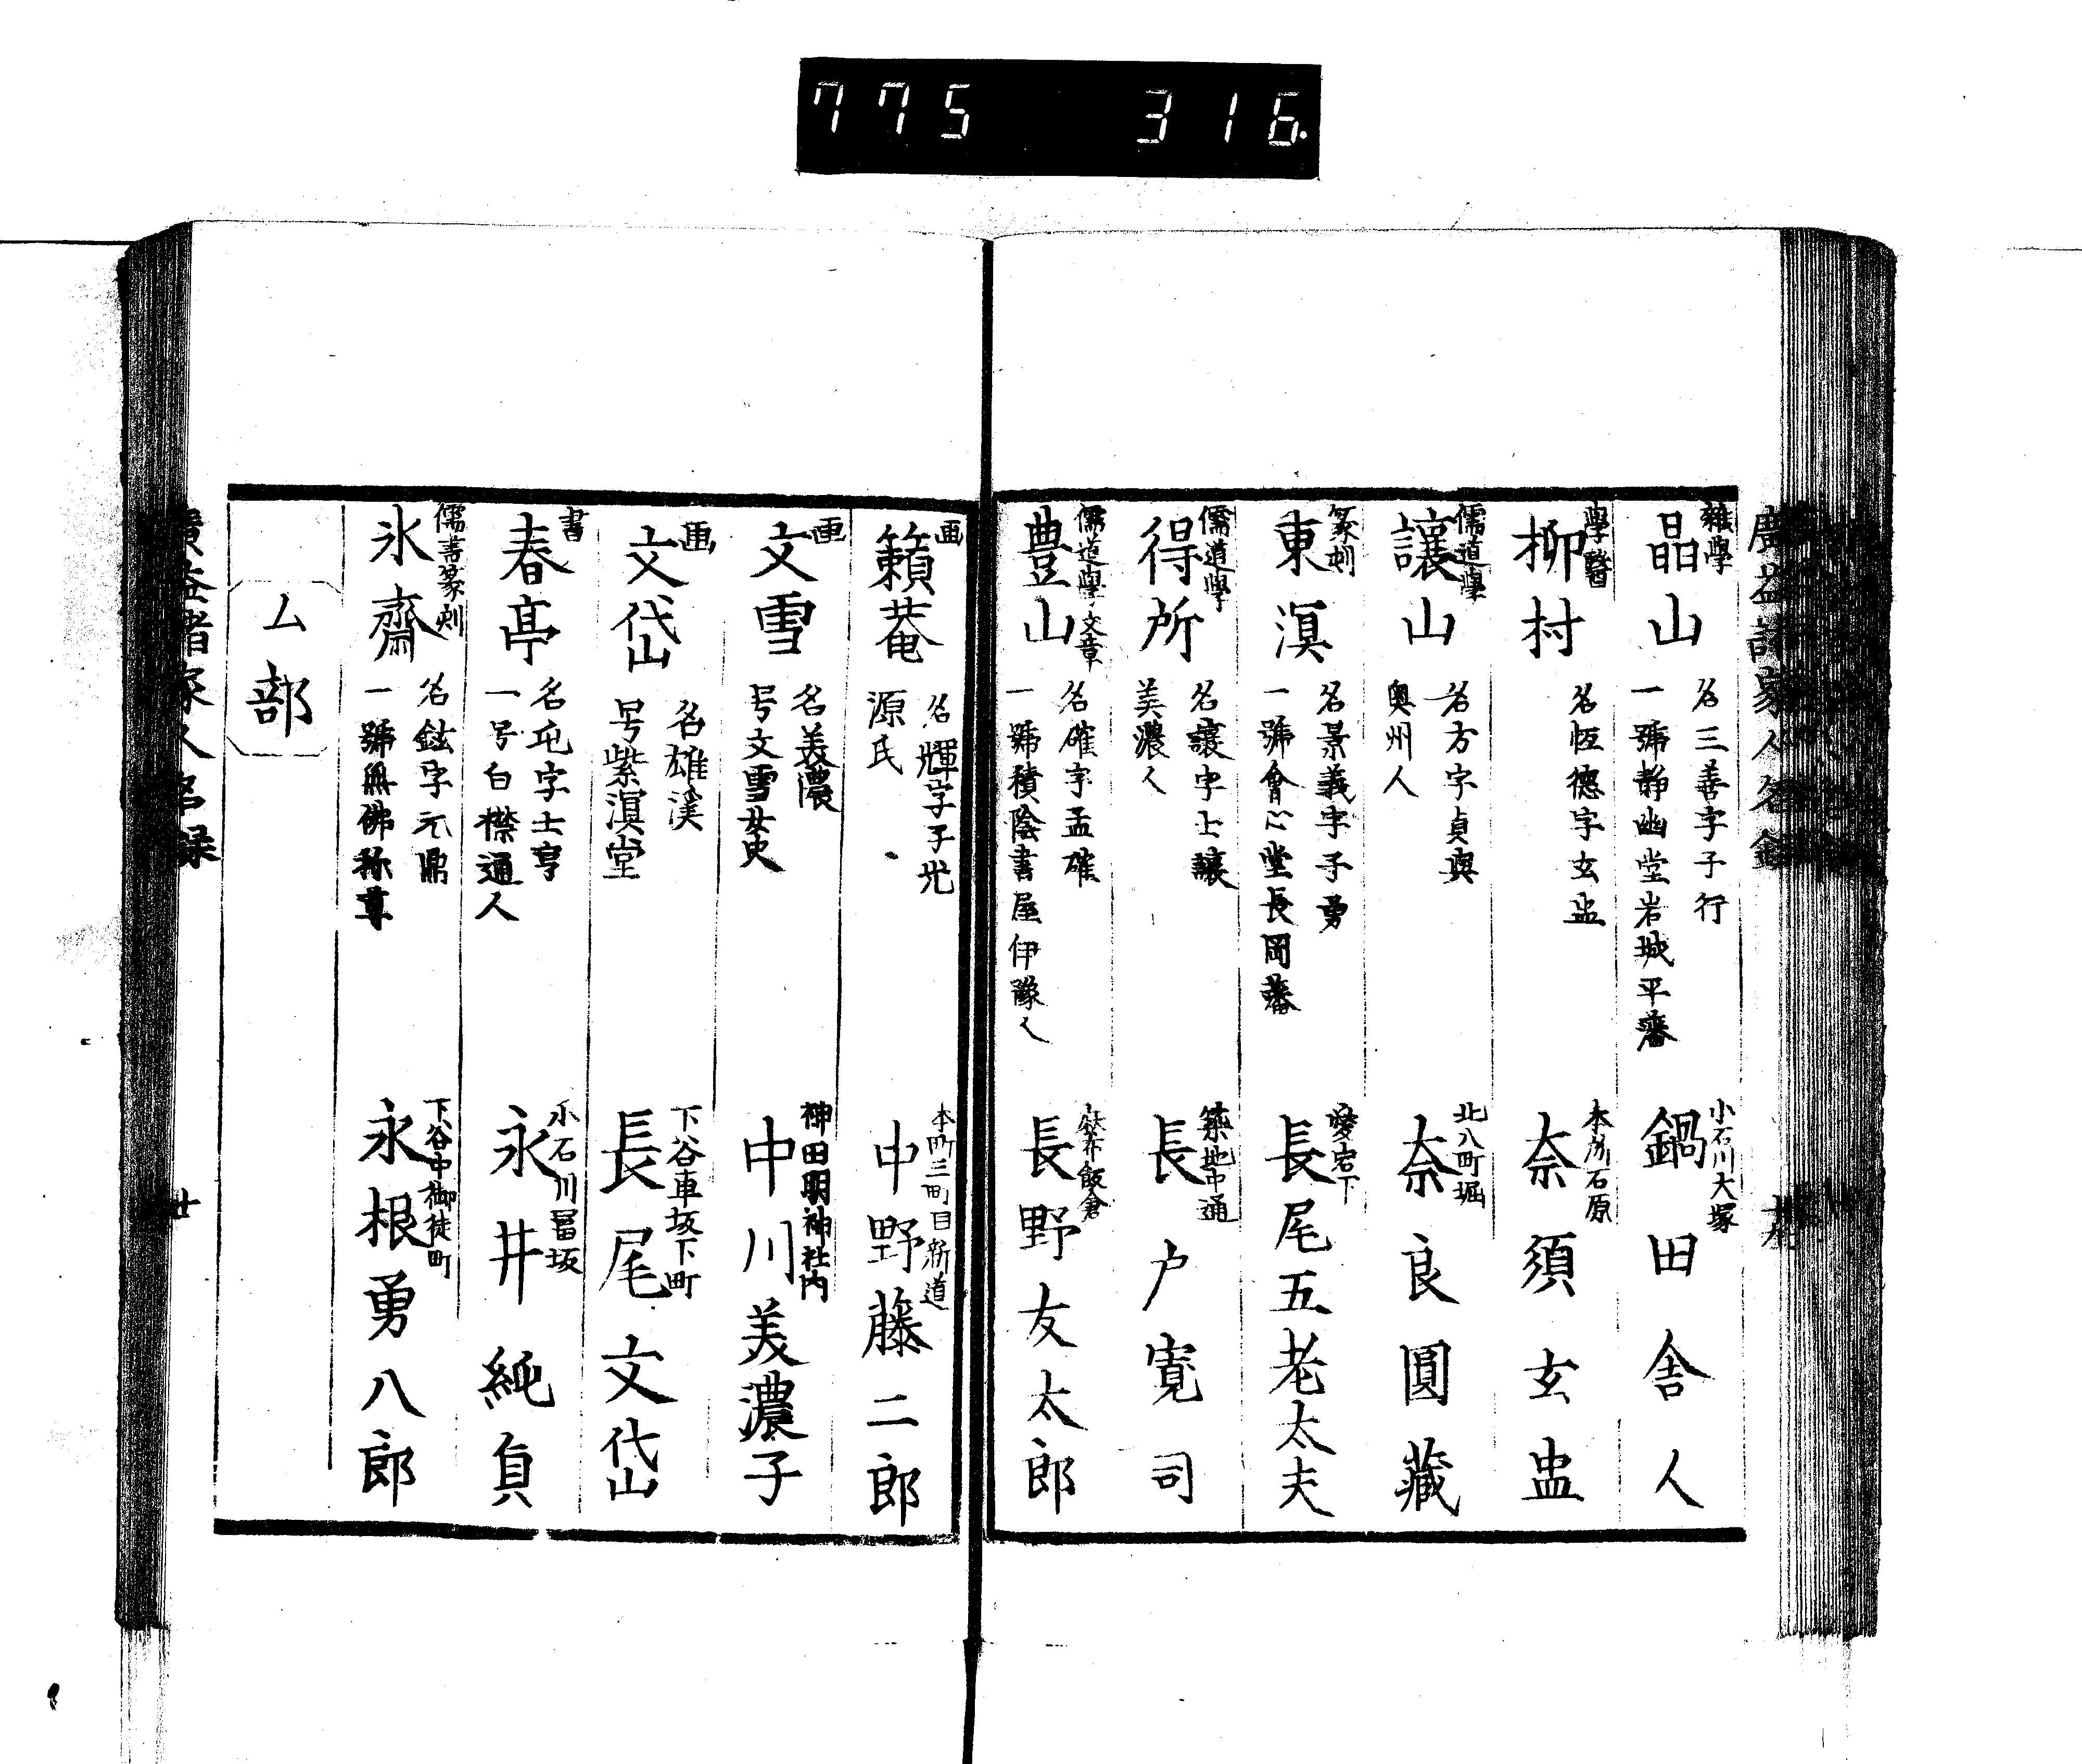 775 316.
廣益諸家人名録
雑學
晶山
名三善字子行
一號静幽堂岩城平藩
小石川大塚
鍋田舎人
學醫
柳村
名恆德字玄盅
本所石原
奈須玄盅
儒道學
讓山
名方字貞與
奥州人
北八町堀
奈良圓藏
篆刻
東溟
名景義字子勇
一號會心堂長岡藩
愛宕下
長尾五老太夫
儒道學
得所
名讓字士讓
美濃人
築地中通
長戸寛司
儒道學文章
豊山
名確字孟確
一號積陰書屋伊豫人
麻布飯倉
長野友太郎
画
籟菴
名輝字子光
源氏
本町三町目新道
中野藤二郎
画
文雪
名美濃
号文雪女史
神田明神社内
中川美濃子
画
文岱
名雄溪
号紫溟堂
下谷車坂下町
長尾文岱
書
春亭
名屯字士亨
一号白襟通人
小石川冨坂
永井純貞
儒書篆刻
氷齋
名鉉字元鼎
一號無佛称尊
下谷中御徒町
永根勇八郎
ム部
廣益諸家人名録
廿